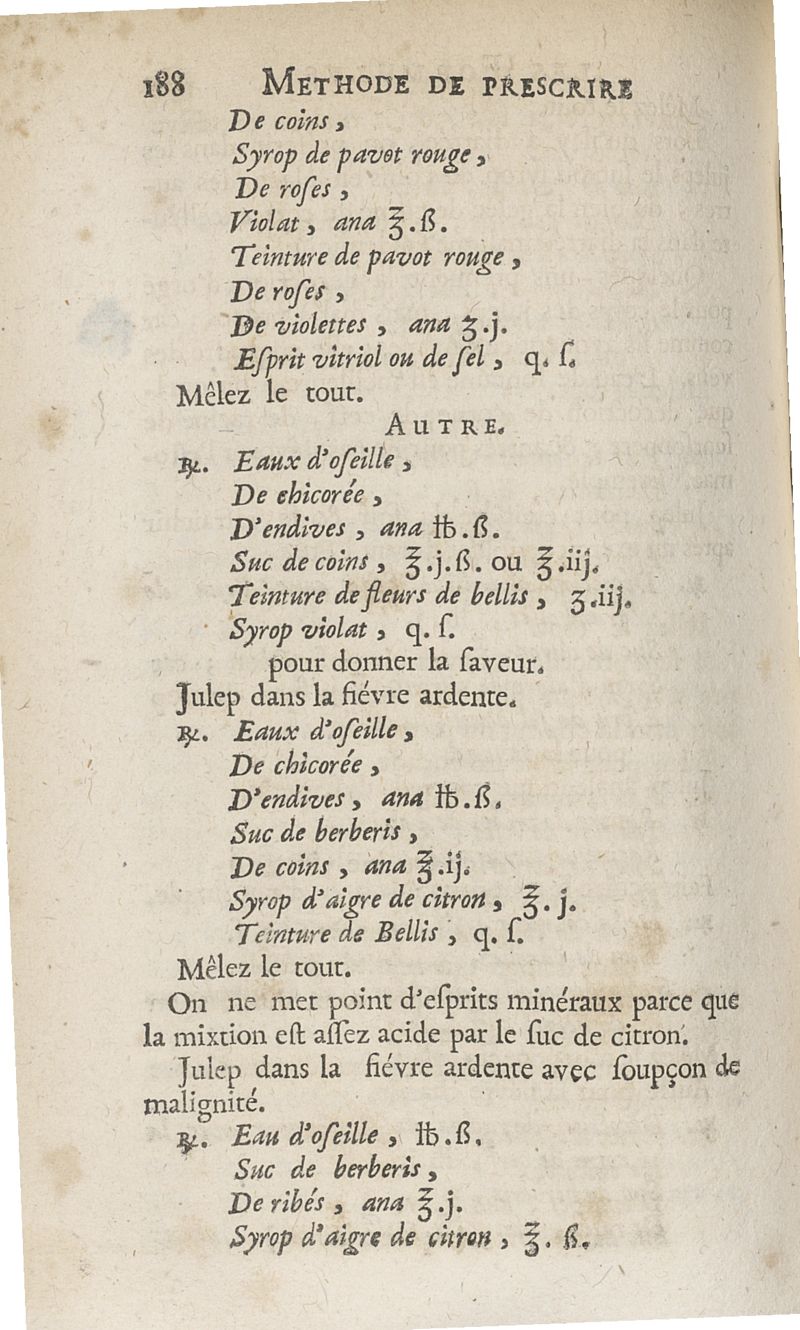 188 METHODE DE PRESCRIRE
De coins,
Syrop de pavot rouge,
De roſes,
Violat, ana ℥.ß.
Teinture de pavot rouge,
De roſes,
De violettes, ana ʒ.j.
Eſprit vitriol ou de ſel, q. ſ.
Mêlez le tout.
AUTRE.
℞. Eaux d'oſeille,
De chicorée,
D'endives, ana ℔.ß.
Suc de coins, ℥.j.ß. ou ℥.iij.
Teinture de fleurs de bellis, ʒ.iij.
Syrop violat, q. ſ.
pour donner la ſaveur.
Julep dans la fiévre ardente.
℞. Eaux d'oſeille,
De chicorée,
D'endives, ana ℔.ß.
Suc de berberis,
De coins, ana ℥.ij.
Syrop d'aigre de citron, ℥. j.
Teinture de Bellis, q. ſ.
Mêlez le tout.
On ne met point d'eſprits minéraux parce que
la mixtion eſt aſſez acide par le ſuc de citron.
Julep dans la fiévre ardente avec ſoupçon de
malignité.
℞. Eau d'oſeille, ℔.ß.
Suc de berberis,
De ribés, ana ℥.j.
Syrop d'aigre de citron, ℥. ß.